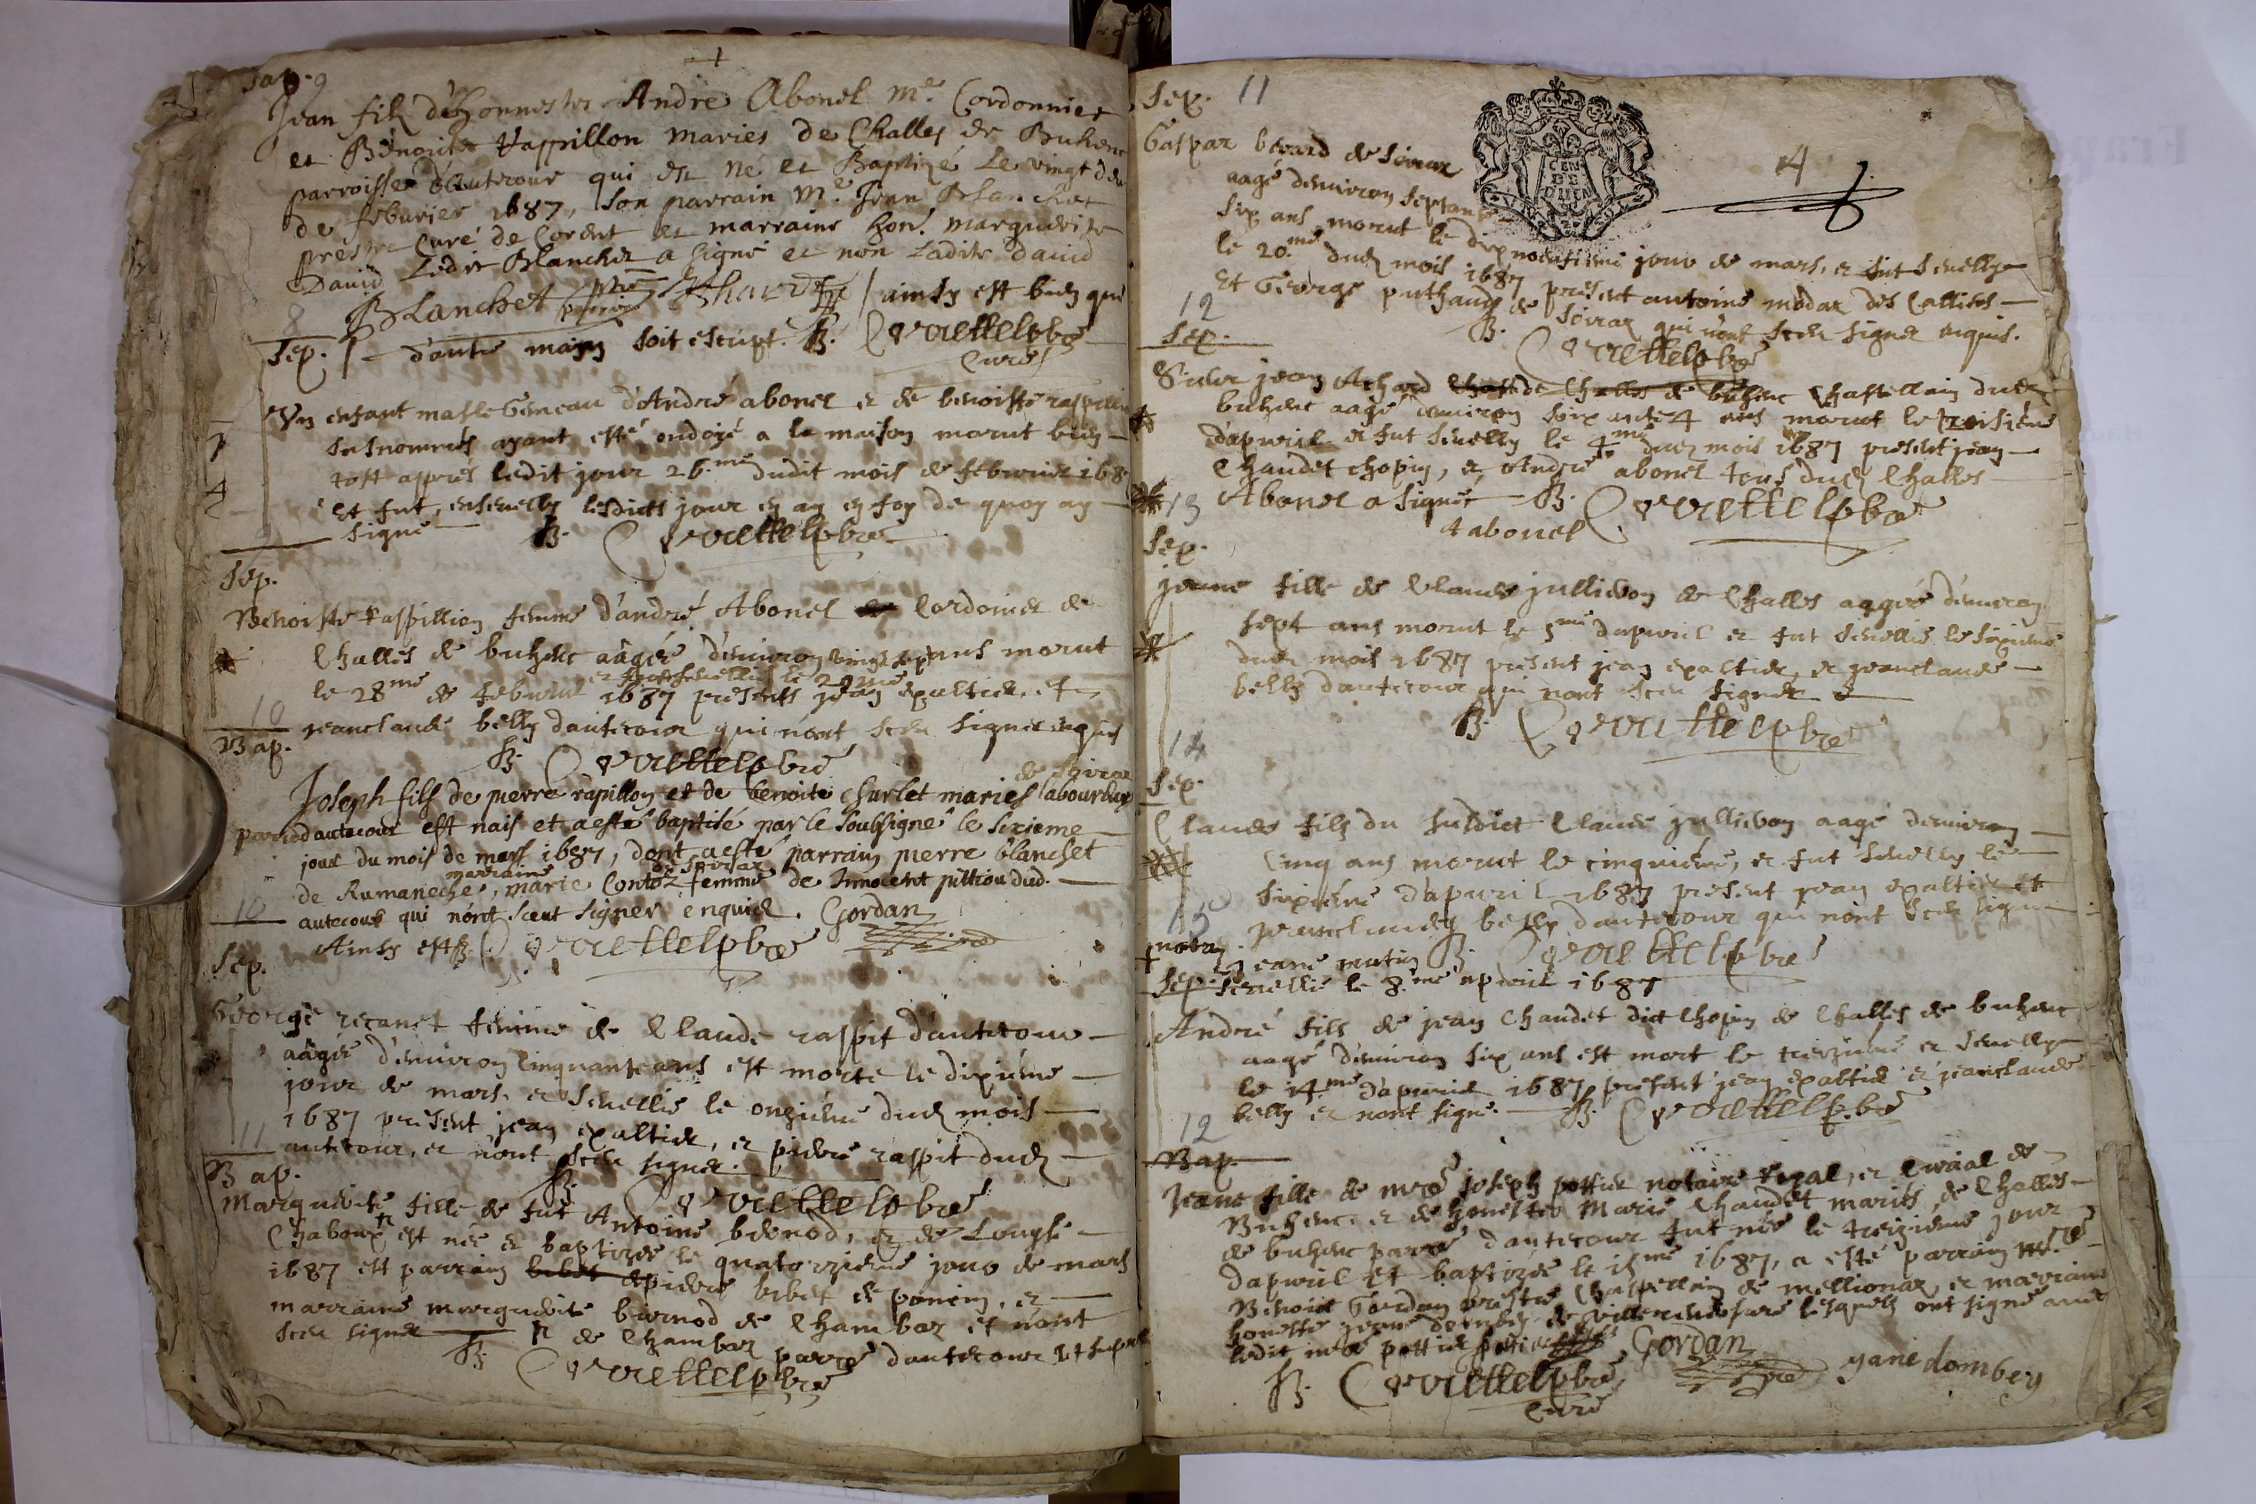 Bap. 9
Jean fils d'honnestes André Abonel Me. Cordonnier
et Bénoite Rappillon mariés de Challes de Buhenc
parroisse d'Autecour qui est né et Baptizé Le vingt
de feburier 1687, Son parrain Me. Jean Blanchet
prestre Curé de Corent et marraine hon. marguerite
David Ledit Blanchet a signé et non Ladite David
Blanchet ainsy est bien que
8
Sep. d'autre main soit escript. B. Cvuettel pbre
Curé
Un enfant masle Gemeau d'André abonel et de benoiste raspillion
susnommés ayant esté ondoyé a la maison morut bien
tost apprès ledit jour 26.me dudit mois de febvrier 168
Et fut, ensevelly lesdicts jour en an en foy de quoy ay
signé B. Cvuettel pbre
9
Sep.
Benoiste raspillion femme d'andré Abonel Cordonier de
Challes de buhenc aâgée d'environ vingt sept ans morut
et fut sevellie le 29me
le 28me de feburier 1687 présents jean expaltier et
jeanclaude belly dautecour qui n'ont sceu signer enquis
B. Cvuettel pbre
10
Bap.
de Soirax
Joseph fils de pierre rapillon et de benoite churlet mariés labourbux
parr d autecour est nais et a esté baptisé par le soubsigné le sixieme
jour du mois de mars 1687, dont a esté parrain pierre blanchet
marraine de Soirax
de Rumaneche, marie Contoz femme de Innocent pittiou dud.
autecour qui n'ont sceut signer enquis. Gordan
Ainsy est B. Cvuettel pbre
10
Sep.
George recanet femme de Claude raspit d'autecour
aâgée d'environ Cinquante ans est morte le dixième
jour de mars, et sevellie le onzième dud mois
1687 présent jean expaltier, et pierre raspit dud
autecour, et n'ont sceu signer.
B. Cvuettel pbre
11
Bap.
Marguerite fille de fut Antoine bernod, et de Louyse
Chaboux est née et baptizée le quatorzième jour de mars
1687 est parrain pierre bebet de poncin, et
marraine marguerite burnod de Chambox et n'ont
sceu signer n de Chambox parre d'autecour
B. Cvuettel pbre
Sep. 11
4
Gaspar beward de Soirax
aagé d'environ septante
six ans morut le dixneufieme jour de mars, et fut sevelly
le 20.me dud mois 1687 présent antoine modax des Callices
Et George puthaud de Soirax qui n'ont sceu signer enquis.
B. Cvuettel pbre
12
Sep.
Sieur jean Achard de Challes de buhenc Chastellain dud
buhenc aagé environ soixante 4 ans morut le troisième
d'apvril et fut sevelly le 4me dud mois 1687 présent jean
Chaudet chopin, et André abonel tous dud Challes
Abonel a signé B. Cvuettel pbre
Aabonel
13
Sep.
jeanne fille de Claude jullievon de Challes aagée d'environ
sept ans morut le 5me d'apvril et fut sevellie le sixième
dud mois 1687 présent jean expaltier, et jeanclaude
belly d'autecour qui n'ont sceu signer
B. Cvuettel pbre
14
Sep.
Claude fils du susdict Claude jullievon aagé d'environ
Cinq ans morut le cinquième, et fut sevelly le
sixième d'apvril 1687 présent jean expaltier et
jeanclaude belly d'autecour qui n'ont sceu signer
15
nota Jeane mutin B. Cvuettel pbre
Sep. sevellie le 8.me apvril 1687
André fils de jean Chaudet dict Chopin de Challes de buhenc
aagé d'environ six ans est mort le treizième et sevelly
le 14me d'apvril 1687 présent jean expaltier et jeanclaude
belly et n'ont signé. B. Cvuettel pbre
12
Bap.
Jeane fille de mre joseph pottier notaire royal, et Curial de
Buhenc, et de honeste Marie Chaudet mariés, de Challes
de buhenc parre d'autecour fut née le treizième jour
d'apvril et baptizée le 15me 1687, a esté parrain mre
Benoict Gordan prestre Chappellain de mellionax, et marraine
honeste jeane dombey de Villereversure lesquels ont signé avec
ledit mre pottier Gordan
yane dombey
B. Cvuettel pbre
Curé